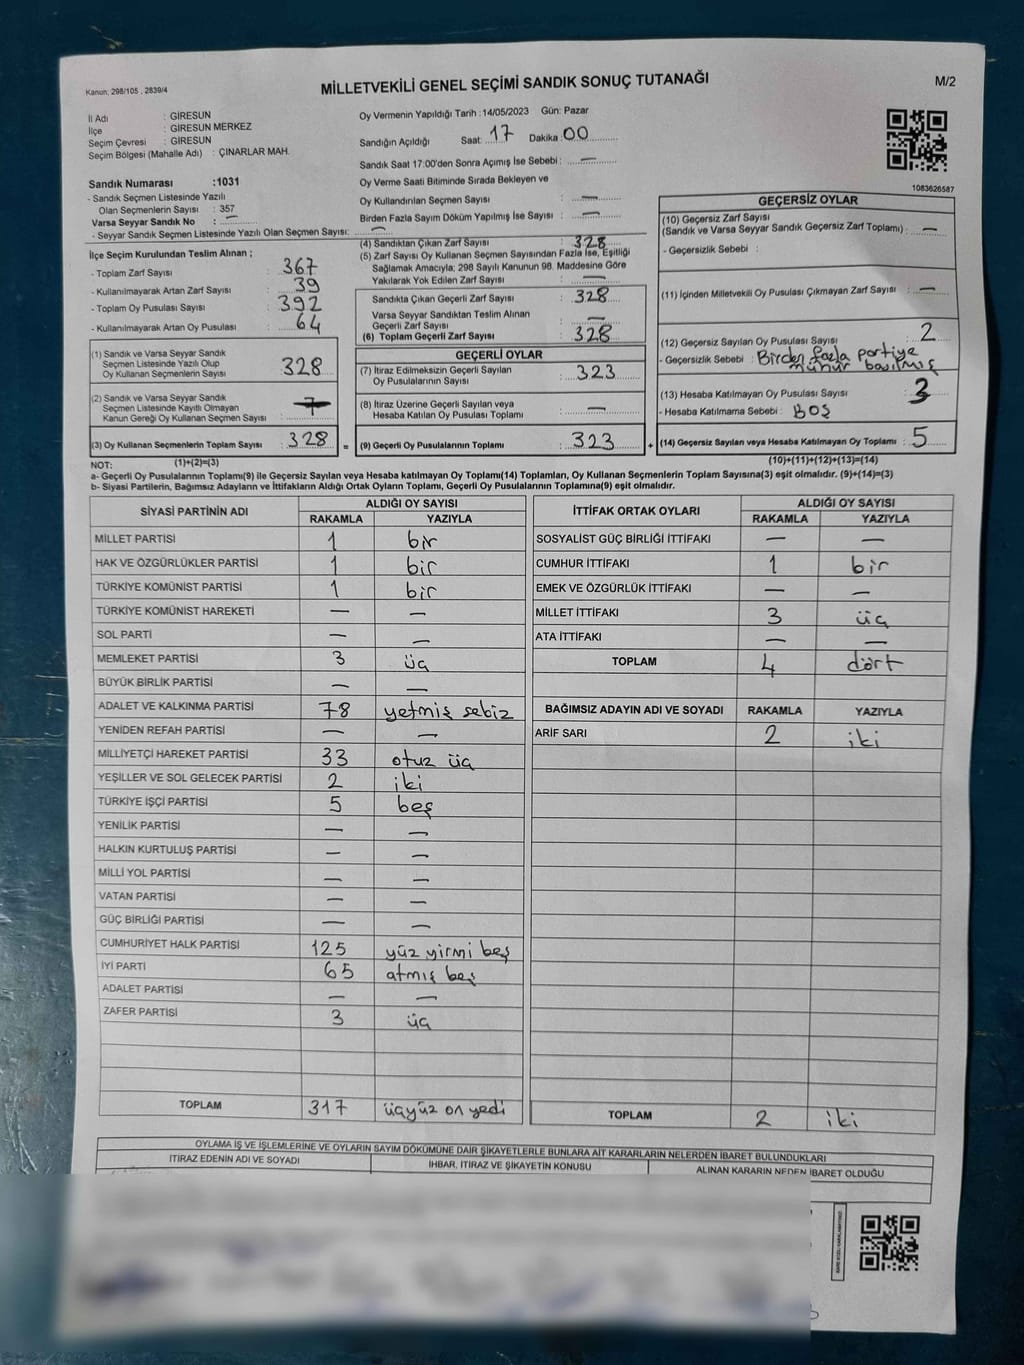 Kanun: 298/105 , 2839/4
MİLLETVEKİLİ GENEL SEÇİMİ SANDIK SONUÇ TUTANAĞI
M/2
İl Adı : GİRESUN
İlçe : GİRESUN MERKEZ
Seçim Çevresi : GİRESUN
Seçim Bölgesi (Mahalle Adı) : ÇINARLAR MAH.
Sandık Numarası :1031
- Sandık Seçmen Listesinde Yazılı
Olan Seçmenlerin Sayısı : 357
Varsa Seyyar Sandık No : —
- Seyyar Sandık Seçmen Listesinde Yazılı Olan Seçmen Sayısı: —
Oy Vermenin Yapıldığı Tarih : 14/05/2023 Gün: Pazar
Sandığın Açıldığı Saat: 17 Dakika 00
Sandık Saat 17:00'den Sonra Açımış İse Sebebi : —
Oy Verme Saati Bitiminde Sırada Bekleyen ve
Oy Kullandırılan Seçmen Sayısı : —
Birden Fazla Sayım Döküm Yapılmış İse Sayısı : —
1083626587
İlçe Seçim Kurulundan Teslim Alınan ;
- Toplam Zarf Sayısı : 367
- Kullanılmayarak Artan Zarf Sayısı : 39
- Toplam Oy Pusulası Sayısı : 392
- Kullanılmayarak Artan Oy Pusulası : 64
(1) Sandık ve Varsa Seyyar Sandık
Seçmen Listesinde Yazılı Olup
Oy Kullanan Seçmenlerin Sayısı : 328
(2) Sandık ve Varsa Seyyar Sandık
Seçmen Listesinde Kayıtlı Olmayan
Kanun Gereği Oy Kullanan Seçmen Sayısı :
(3) Oy Kullanan Seçmenlerin Toplam Sayısı : 328 =
(4) Sandıktan Çıkan Zarf Sayısı : 328
(5) Zarf Sayısı Oy Kullanan Seçmen Sayısından Fazla İse, Eşitliği
Sağlamak Amacıyla; 298 Sayılı Kanunun 98. Maddesine Göre
Yakılarak Yok Edilen Zarf Sayısı : —
Sandıkta Çıkan Geçerli Zarf Sayısı : 328
Varsa Seyyar Sandıktan Teslim Alınan
Geçerli Zarf Sayısı : —
(6) Toplam Geçerli Zarf Sayısı : 328
GEÇERLİ OYLAR
(7) İtiraz Edilmeksizin Geçerli Sayılan
Oy Pusulalarının Sayısı : 323
(8) İtiraz Üzerine Geçerli Sayılan veya
Hesaba Katılan Oy Pusulası Toplamı : —
(9) Geçerli Oy Pusulalarının Toplamı : 323 +
GEÇERSİZ OYLAR
(10) Geçersiz Zarf Sayısı
(Sandık ve Varsa Seyyar Sandık Geçersiz Zarf Toplamı) : —
- Geçersizlik Sebebi :
(11) İçinden Milletvekili Oy Pusulası Çıkmayan Zarf Sayısı : —
(12) Geçersiz Sayılan Oy Pusulası Sayısı : 2
- Geçersizlik Sebebi : Birden fazla partiye
mühür basılmış
(13) Hesaba Katılmayan Oy Pusulası Sayısı : 3
- Hesaba Katılmama Sebebi : BOŞ
(14) Geçersiz Sayılan veya Hesaba Katılmayan Oy Toplamı : 5
NOT: (1)+(2)=(3) (10)+(11)+(12)+(13)=(14)
a- Geçerli Oy Pusulalarının Toplamı(9) ile Geçersiz Sayılan veya Hesaba katılmayan Oy Toplamı(14) Toplamları, Oy Kullanan Seçmenlerin Toplam Sayısına(3) eşit olmalıdır. (9)+(14)=(3)
b- Siyasi Partilerin, Bağımsız Adayların ve İttifakların Aldığı Ortak Oyların Toplamı, Geçerli Oy Pusulalarının Toplamına(9) eşit olmalıdır.
SİYASİ PARTİNİN ADI ALDIĞI OY SAYISI
RAKAMLA YAZIYLA
MİLLET PARTİSİ 1 bir
HAK VE ÖZGÜRLÜKLER PARTİSİ 1 bir
TÜRKİYE KOMÜNİST PARTİSİ 1 bir
TÜRKİYE KOMÜNİST HAREKETİ — —
SOL PARTİ — —
MEMLEKET PARTİSİ 3 üç
BÜYÜK BİRLİK PARTİSİ — —
ADALET VE KALKINMA PARTİSİ 78 yetmiş sekiz
YENİDEN REFAH PARTİSİ — —
MİLLİYETÇİ HAREKET PARTİSİ 33 otuz üç
YEŞİLLER VE SOL GELECEK PARTİSİ 2 iki
TÜRKİYE İŞÇİ PARTİSİ 5 beş
YENİLİK PARTİSİ — —
HALKIN KURTULUŞ PARTİSİ — —
MİLLİ YOL PARTİSİ — —
VATAN PARTİSİ — —
GÜÇ BİRLİĞİ PARTİSİ — —
CUMHURİYET HALK PARTİSİ 125 yüz yirmi beş
İYİ PARTİ 65 atmış beş
ADALET PARTİSİ — —
ZAFER PARTİSİ 3 üç
TOPLAM 317 üçyüz on yedi
İTTİFAK ORTAK OYLARI ALDIĞI OY SAYISI
RAKAMLA YAZIYLA
SOSYALİST GÜÇ BİRLİĞİ İTTİFAKI — —
CUMHUR İTTİFAKI 1 bir
EMEK VE ÖZGÜRLÜK İTTİFAKI — —
MİLLET İTTİFAKI 3 üç
ATA İTTİFAKI — —
TOPLAM 4 dört
BAĞIMSIZ ADAYIN ADI VE SOYADI RAKAMLA YAZIYLA
ARİF SARI 2 iki
TOPLAM 2 iki
OYLAMA İŞ VE İŞLEMLERİNE VE OYLARIN SAYIM DÖKÜMÜNE DAİR ŞİKAYETLERLE BUNLARA AİT KARARLARIN NELERDEN İBARET BULUNDUKLARI
İTİRAZ EDENİN ADI VE SOYADI İHBAR, İTİRAZ VE ŞİKAYETİN KONUSU ALINAN KARARIN NEDEN İBARET OLDUĞU